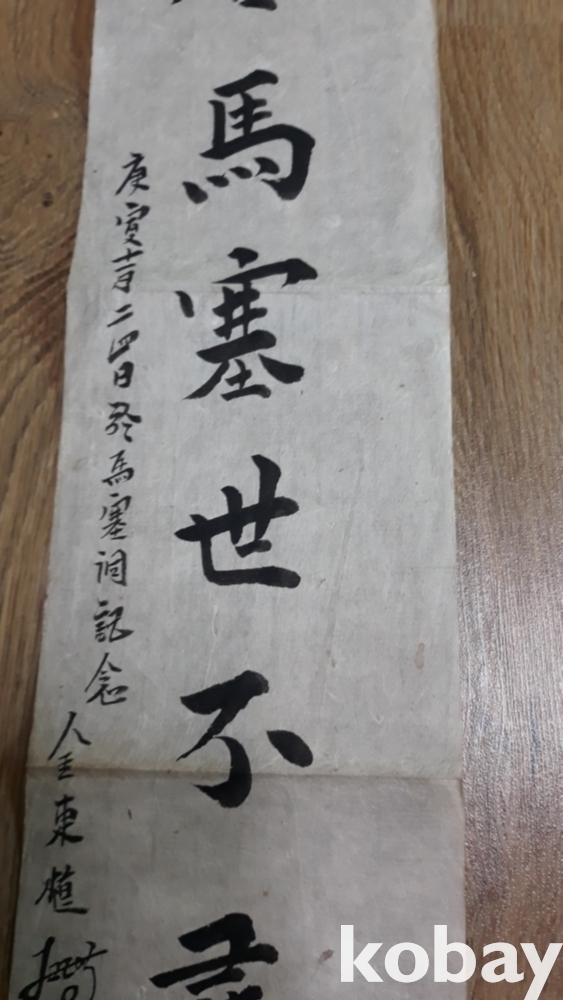 馬塞世不
庚寅十一月二四日於馬塞詞記念
金東植
kobay